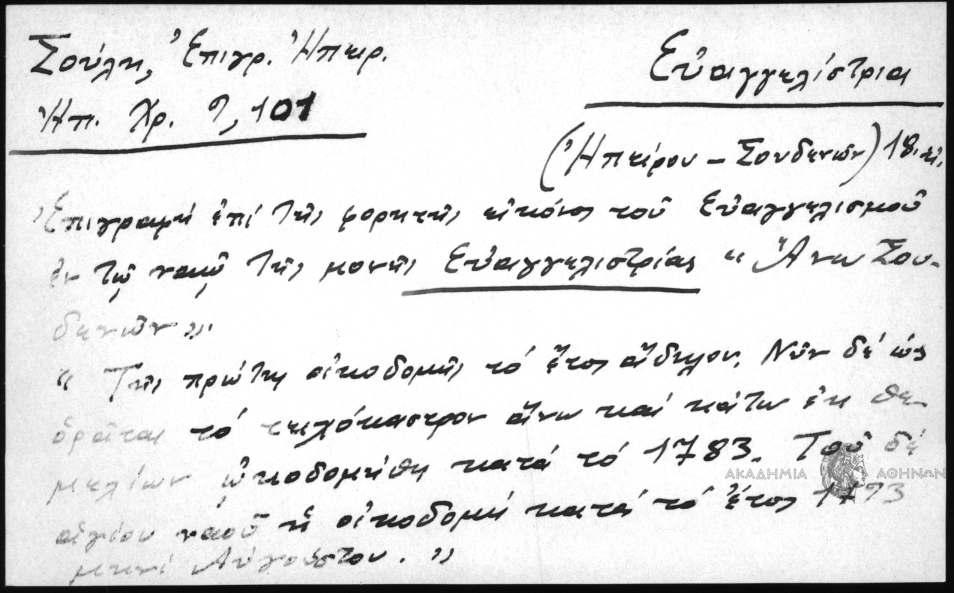 Σούλη, Ἐπιγρ. Ἠπειρ.
Ἠπ. Χρ. 9, 101
Εὐαγγελίστρια
(Ἠπείρου – Σουδενῶν) 18. αἰ.
Ἐπιγραφή ἐπί τῆς φορητῆς εἰκόνος τοῦ Εὐαγγελισμοῦ
ἐν τῷ ναῷ τῆς μονῆς Εὐαγγελιστρίας "Ἄνω Σου-
δενῶν"
"Τῆς πρώτης οἰκοδομῆς τό ἔτος ἄδηλον. Νῦν δέ ὡς
ὁρᾶται τό κάστρον ἄνω καί κάτω ἐκ θε-
μελίων ᾠκοδομήθη κατά τό 1783. Τοῦ δέ
ἁγίου ναοῦ ἡ οἰκοδομή κατά τό ἔτος 1793
μηνί Αὐγούστου."
ΑΚΑΔΗΜΙΑ ΑΘΗΝΩΝ